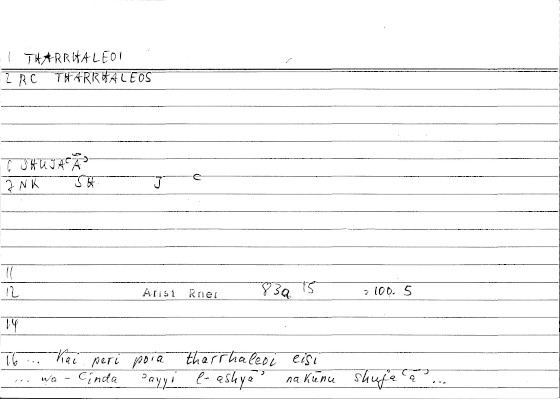 1 THARRHALEOI
2 RC THARRHALEOS
6 SHUJAʿĀʾ
7 NK SH J ʿ
11
12 Arist Rhet 83a 15 =100.5
14
16 ... Kai peri poia tharrhaleoi eisi
... wa-ʿinda ʾayyi l-ashyāʾ nakūnu shujaʿāʾ...